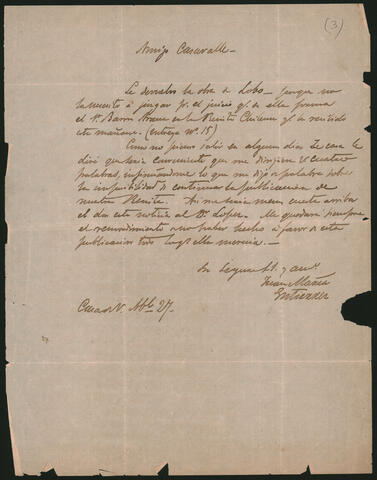 (3)
Amigo Casavalle_
Le devuelvo la obra de Lobo_ porque no
la necesito á juzgar pr. el juicio q. de ella forma
el Sr. Barros Arana en la Revista Chilena q. he recibido
esta mañana. (entrega Nº 15)
Como no pienso salir en algunos días de casa le
diré que sería conveniente que me dirijiera V. cuatro
palabras, informándome lo que me dijo de palabra sobre
la imposibilidad de continuar la publicacion de
nuestra Revista. Así me sería menos cuesta arriba
el dar esta noticia al Dr. Lopez. Me quedará siempre
el remordimiento de no haber hecho á favor de esta
publicacion todo lo q. ella merecia._
Su seguro S. y am.
Juan María
Gutierrez
Casa de V. Abl. 27.